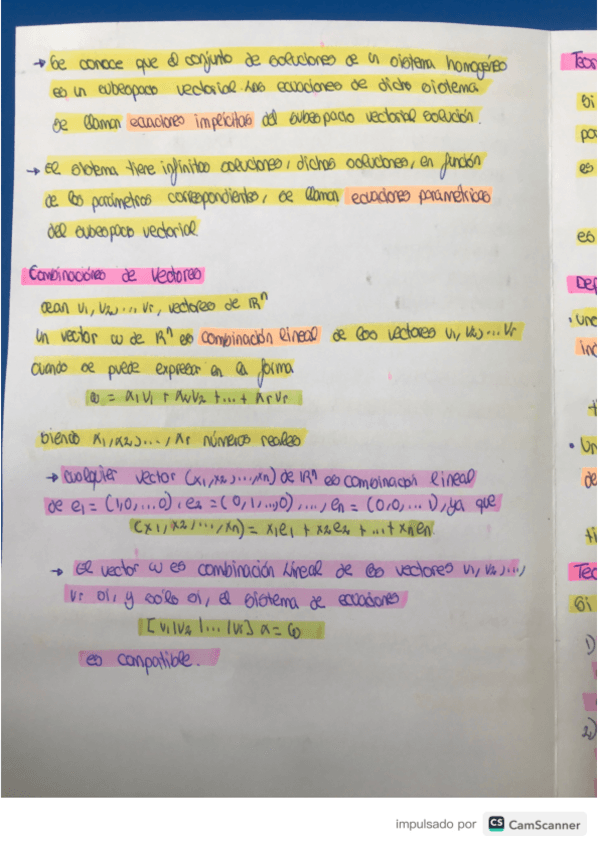 → Se conoce que el conjunto de soluciones de un sistema homogéneo
es un subespacio vectorial. Las ecuaciones de dicho sistema
se llaman ecuaciones implícitas del subespacio vectorial solución.
→ El sistema tiene infinitas soluciones, dichas soluciones, en función
de los parámetros correspondientes, se llaman ecuaciones paramétricas
del subespacio vectorial.
Combinaciones de vectores
sean v1, v2, ... vr, vectores de ℝⁿ
un vector w de ℝⁿ es combinación lineal de los vectores v1, v2, ... vr
cuando se puede expresar en la forma
w = x1v1 + x2v2 + ... + xrvr
siendo x1, x2, ..., xr números reales
→ cualquier vector (x1, x2, ..., xn) de ℝⁿ es combinación lineal
de e1 = (1,0,...0), e2 = (0,1,...,0) ..., en = (0,0,...1), ya que
(x1, x2, ..., xn) = x1e1 + x2e2 + ... + xnen.
→ El vector w es combinación lineal de los vectores v1, v2, ...,
vr si, y sólo si, el sistema de ecuaciones
[v1|v2|...|vr] x = w
es compatible.
Teor
Si
po
es
es
Def
• uno
ind
t
• Un
de
ti
Teo
Si
1)
2)
impulsado por CS CamScanner